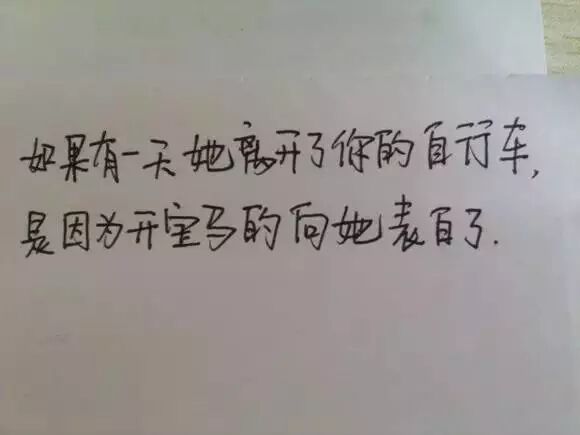 如果有一天她离开了你的自行车,
是因为开宝马的向她表白了.